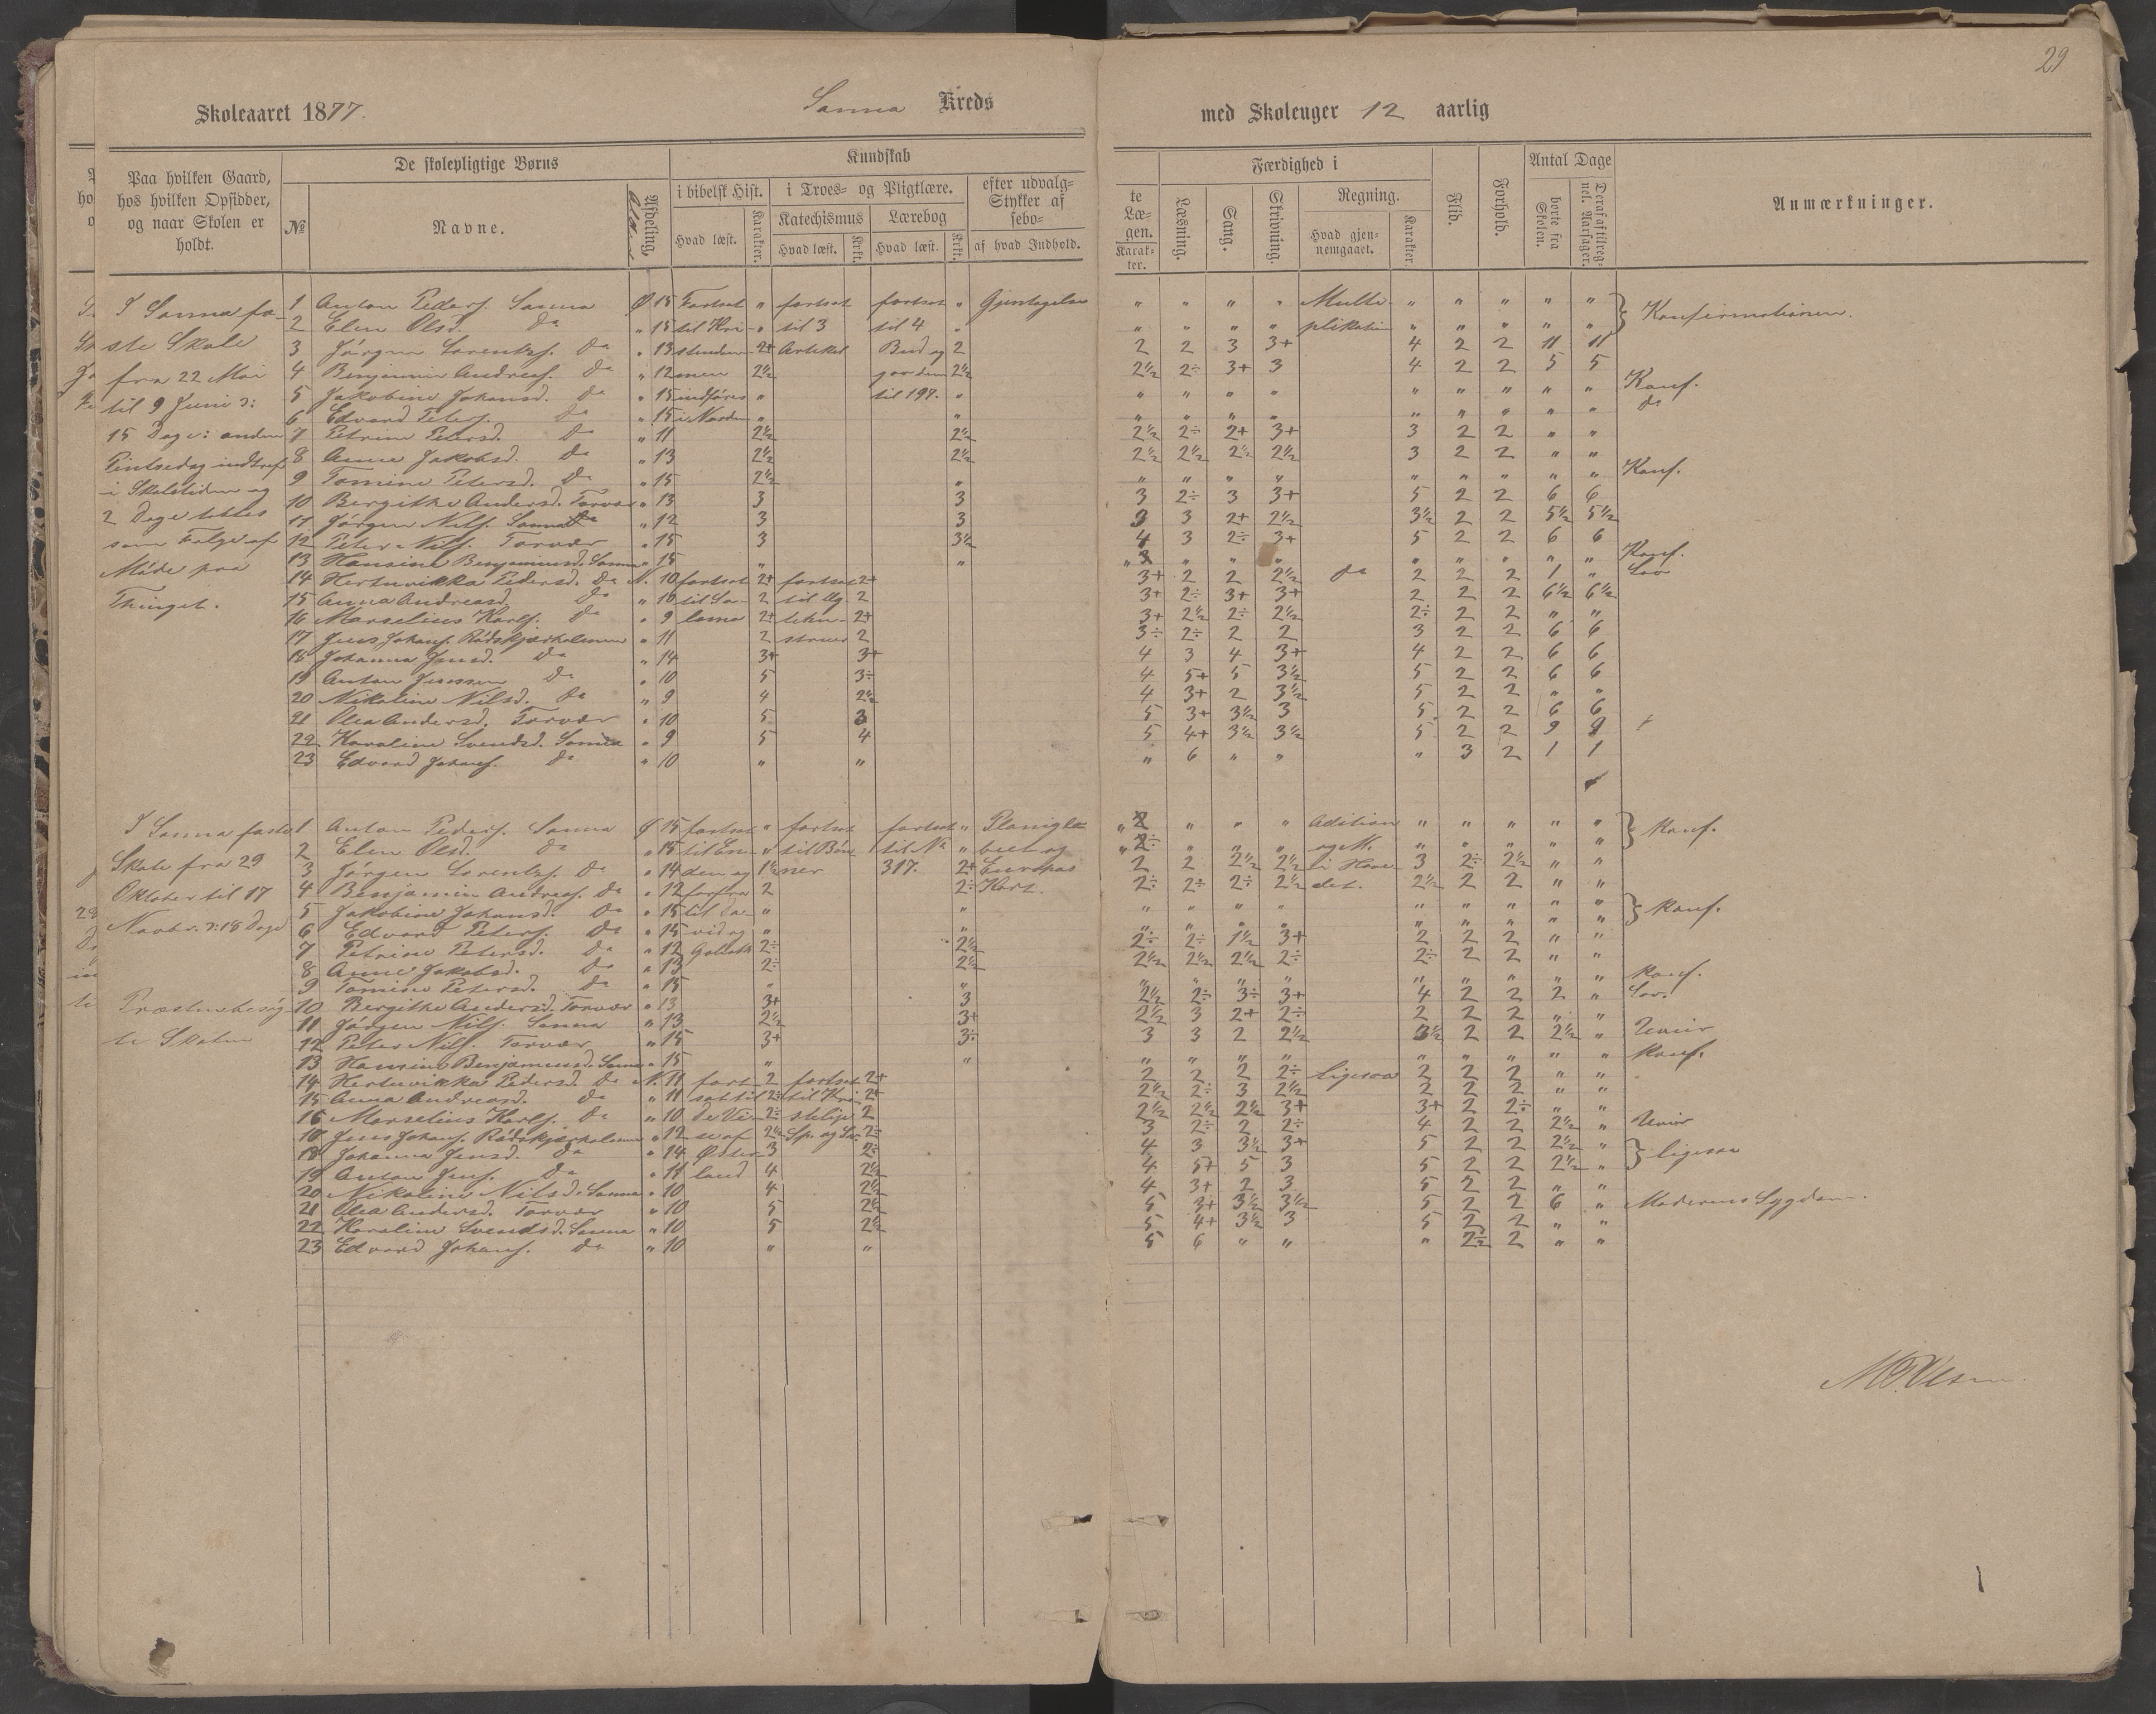 29
Skoleaaret 1877.
Sanna Kreds
med Skoleuger 12 aarlig
Paa hvilken Gaard, hos hvilken Opsidder, og naar Skolen er holdt.
De skolepligtige Børns
№
Navne.
Afdeling.
Alder
Kundskab
i bibelsk Hist.
Hvad læst.
Karakter.
i Troes- og Pligtlære.
Katechismus
Hvad læst.
Krkt.
Lærebog
Hvad læst.
Krkt.
efter udvalg-
Stykker af
sebo-
af hvad Indhold.
te
Læ-
gen.
Karak-
ter.
Færdighed i
Læsning.
Sang.
Skrivning.
Regning.
Hvad gjen-
nemgaaet.
Karakter.
Flid.
Forhold.
Antal Dage
borte fra Skolen.
Deraf af tilreg-
nel. Aarsager.
Anmærkninger.
I Sanna fa-
ste Skole
fra 22 Mai
til 9 Juni ɔ:
15 Dage: anden
Pintsedag indtraf
i Skoletiden og
2 Dage tabtes
som Følge af
Møde paa
Thinget.
1 Anton Peders. Sanna Ø 15 Fortsat " fortsat fortsat " Gjentagelse " " " " Multi- " " " " " Konfirmationen.
2 Elen Olsd. Do " 15 til Kri- " til 3 til 4 " " " " " plikation " " " " "
3 Jørgen Lorents. Do " 13 stendom- 2+ Artikel Bud og 2 2 2 3 3+ 4 2 2 11 11
4 Benjamin Andreas. Do " 12 men 2½ 2½ 2½ 2÷ 3+ 3 4 2 2 5 5
5 Jakobine Johansd. Do " 15 indføres " til 197. " " " " " " " " " " Konf.
6 Edvard Peters. Do " 15 i Norden " " " " " " " " " " " Do
7 Petrine Petersd. Do " 11 2½ 2½ 2½ 2÷ 2+ 3+ 3 2 2 " "
8 Anne Jakobsd. Do " 13 2½ 2½ 2½ 2½ 2½ 2½ 3 2 2 " "
9 Tomine Petersd. Do " 15 2½ " " " " " " " " " " Konf.
10 Bergithe Andersd. Torvær " 13 3 3 3 2÷ 3 3+ 5 2 2 6 6
11 Jørgen Nils. Sanna " 12 3 3 3 3 2+ 2½ 3½ 2 2 5½ 5½
12 Peter Nils. Torvær " 15 3 3½ 4 3 2÷ 3+ 5 2 2 6 6
13 Hansine Benjaminsd. Sanna " 15 " " " " " " " " " " " Konf.
14 Hertuvikka Pedersd. Do N. 10 fortsat 2+ fortsat 2+ 3+ 2 2 2½ Do 2 2 2 1 " Lov
15 Anna Andreasd. Do " 10 til Sa- 2 til Ug- 2 3+ 2÷ 3+ 3+ 2 2 2 6½ 6½
16 Marselius Karls. Do " 9 lomo 2+ 2+ 3+ 2½ 2÷ 2½ 2÷ 2 2 " "
17 Jens Johans. Rödskjærholmen " 11 2 2 3÷ 2÷ 2 2 3 2 2 6 6
18 Johanna Jensd. Do " 14 3+ 3+ 4 3 4 3+ 4 2 2 6 6
19 Anton Jenssen Do " 10 5 3÷ 4 5+ 5 3½ 5 2 2 6 6
20 Nikoline Nilsd. Do " 9 4 2½ 4 3+ 2 3½ 5 2 2 " "
21 Olea Andersd. Torvær " 10 5 3 5 3+ 3½ 3 5 2 2 6 6
22 Karoline Svendsd. Sanna " 9 5 4 5 4+ 3½ 3½ 5 2 2 9 9
23 Edvard Johans. Do " 10 " " " 6 " " " 3 2 1 1
I Sanna faste
Skole fra 29
Oktober til 17
Novbr. ɔ: 18 Dage
Præsten besøg-
te Skolen
1 Anton Peders. Sanna Ø 15 fortsat " fortsat fortsat " Planiglo- " " " " Adition " " " " " Konf.
2 Elen Olsd. Do " 15 " til Bøn- til No " biet og " " " " og M. " " " " "
3 Jørgen Lorents. Do " 14 den og 1½ ner 317. 2+ Europas 2 2 2½ 2½ i Hove- 3 2÷ 2½ " "
4 Benjamin Andreas. Do " 12 forfra 2 2÷ Kart. 2÷ 2÷ 2÷ 2½ det. 2½ 2 2 " "
5 Jakobine Johansd. Do " 15 til Da- " " " " " " " " " " " Konf.
6 Edvard Peters. Do " 15 vid og " " " " " " " " " " "
7 Petrine Petersd. Do " 12 Goliath 2÷ 2½ 2÷ 2÷ 1½ 3+ 2 2 2 " "
8 Anne Jakobsd. Do " 13 2÷ 2½ 2½ 2½ 2½ 2÷ 2÷ 2 2 " "
9 Tomine Petersd. Do " 15 " " " " " " " " " " " Konf.
10 Bergithe Andersd. Torvær " 13 3+ 3 2½ 2÷ 3÷ 3+ 4 2 2 2 " Lov.
11 Jørgen Nils. Sanna " 13 2½ 3+ 2½ 3 2+ 2÷ 2 2 2 " "
12 Peter Nils. Torvær " 15 3+ 3÷ 3 3 2 2½ 3½ 2 2 2½ " Uveir
13 Hansine Benjaminsd. Sanna " 15 " " " " " " " " " " " Konf.
14 Hertuvikka Pedersd. Do N. 11 fort- 2 fortsat 2+ 2 2 2 2÷ Ligesaa 2 2 2 " "
15 Anna Andreasd. Do " 11 sat til 2÷ til Kri- 2+ 2½ 2÷ 3 2½ 2 2 2 " "
16 Marselius Karls. Do " 10 de Vi- 2÷ stelige 2 2½ 2½ 2½ 3+ 3+ 2 2÷ " "
17 Jens Johans. Rödskjærholmen " 12 se af 2½ 2÷ 3 2÷ 2 2÷ 4 2 2 2½ " Uveir
18 Johanna Jensd. Do " 14 Øster- 3 2÷ 4 3 3½ 3+ 5 2 2 2½ " Ligesaa
19 Anton Jens. Do " 11 land 4 2½ 4 5+ 5 3 5 2 2 2½ "
20 Nikoline Nilsd. Sanna " 10 4 2½ 4 3+ 2 3 5 2 2 " "
21 Olea Andersd. Torvær " 10 5 2½ 5 3+ 3½ 3½ 5 2 2 6 " Moderens Sygdom.
22 Karoline Svendsd. Sanna " 10 5 2½ 5 4+ 3½ 3 5 2 2 " "
23 Edvard Johans. Do " 10 " " 5 6 " " " 2½ 2 " "